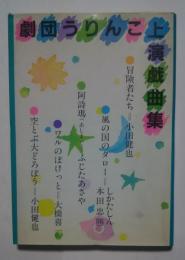 劇団うりんこ上演戯曲集
冒険者たち—小田健也
風の国のタロー—しかたしん 本田忠勝
阿詩瑪—ふじたあさや
ワルのぽけっと—大橋喜一
空とぶ大どろぼう—小田健也